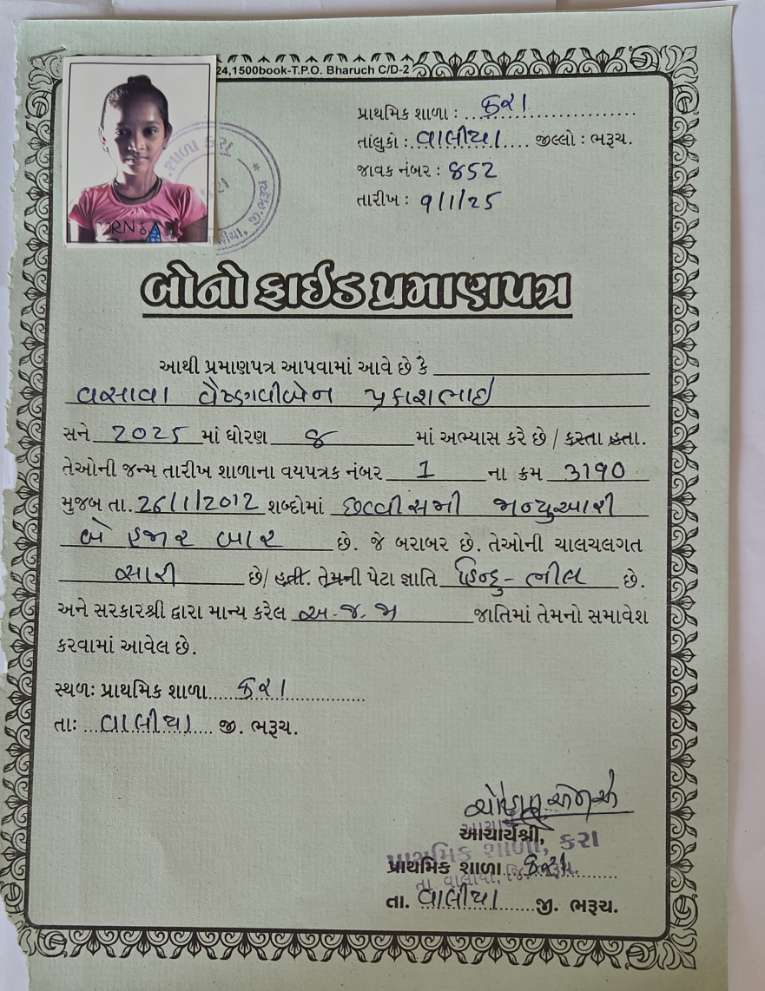 24,1500book-T.P.O. Bharuch C/D-2
પ્રાથમિક શાળા : કરા
તાલુકો : વાલીયા જીલ્લો : ભરૂચ.
જાવક નંબર : ૪૫૨
તારીખ : ૧/૧/૨૫
શાળા કરા
જી.ભરૂચ
બોનો ફાઈડ પ્રમાણપત્ર
આથી પ્રમાણપત્ર આપવામાં આવે છે કે
વસાવા વૈષ્ણવીબેન પ્રકાશભાઇ
સને 2025 માં ધોરણ ૭ માં અભ્યાસ કરે છે / કરતા હતા.
તેઓની જન્મ તારીખ શાળાના વયપત્રક નંબર 1 ના ક્રમ 3190
મુજબ તા. 26/1/2012 શબ્દોમાં છવ્વીસમી જાન્યુઆરી
બે હજાર બાર છે. જે બરાબર છે. તેઓની ચાલચલગત
સારી છે/ હતી. તેમની પેટા જ્ઞાતિ હિન્દુ - ભીલ છે.
અને સરકારશ્રી દ્વારા માન્ય કરેલ અ.જ.જા જાતિમાં તેમનો સમાવેશ
કરવામાં આવેલ છે.
સ્થળઃ પ્રાથમિક શાળા કરા
તાઃ વાલીયા જી. ભરૂચ.
આચાર્યશ્રી,
પ્રાથમિક શાળા, કરા
પ્રાથમિક શાળા કરા
તા. વાલીયા, જિ.
તા. વાલીયા જી. ભરૂચ.